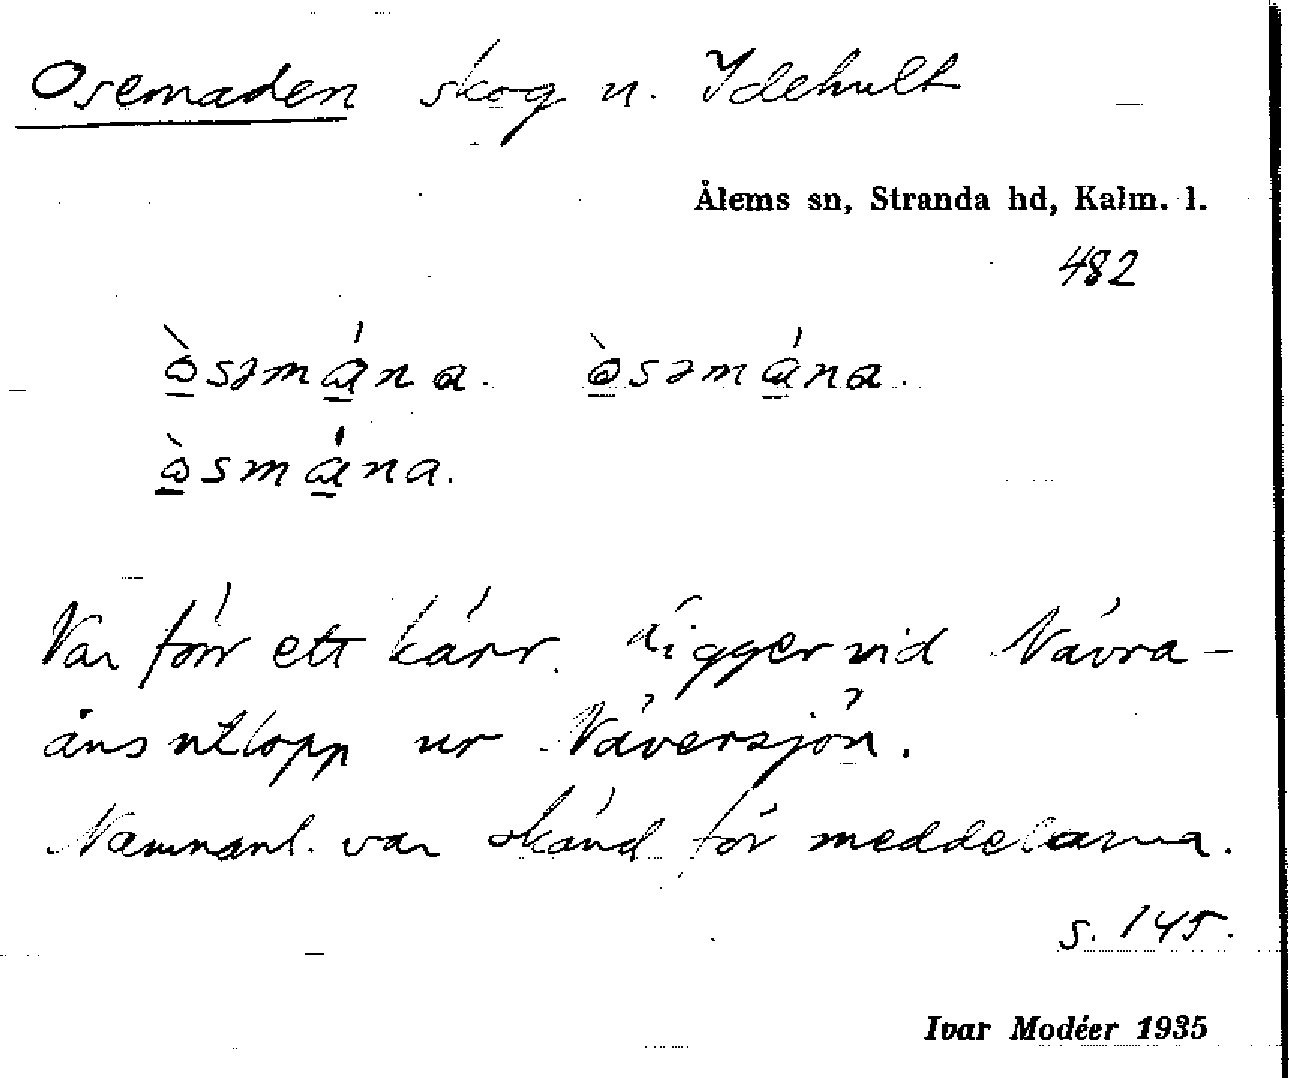 Osemaden skog n. Idehult
Ålems sn, Stranda hd, Kalm. l.
482
ò̱səmá̱na. ò̱səmá̱na.
ò̱smá̱na.
Var förr ett kärr. Ligger vid Návra-
åns utlopp ur Náversjön.
Namnanl. var okänd för meddelarna.
s. 145.
Ivar Modéer 1935